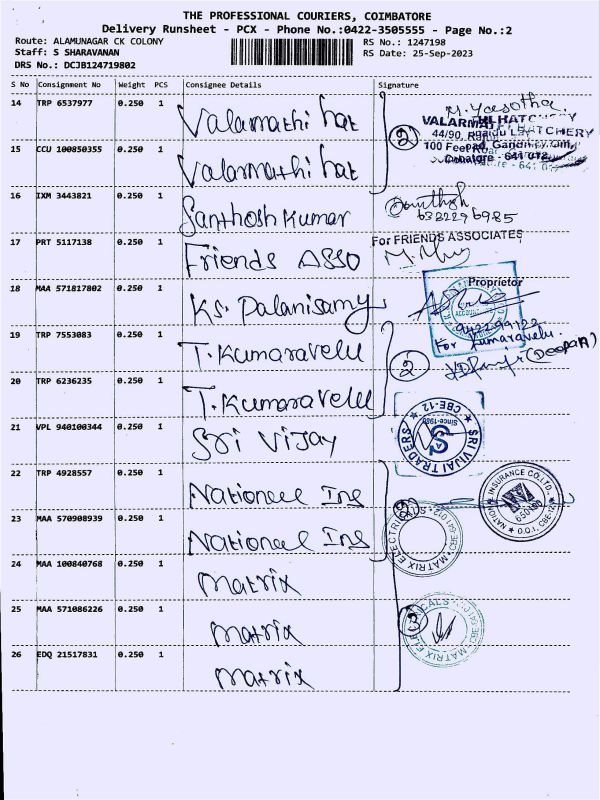 THE PROFESSIONAL COURIERS, COIMBATORE
Delivery Runsheet - PCX - Phone No.:0422-3505555 - Page No.:2
Route: ALAMUNAGAR CK COLONY
RS No.: 1247198
Staff: S SHARAVANAN
RS Date: 25-Sep-2023
DRS No.: DCJB124719802
S No Consignment No Weight PCS Consignee Details Signature
14 TRP 6537977 0.250 1 Valarmathi hat
M. Yasotha.
VALARMATHI HATCHERY
44/90,
100 Feet Road, Gandhipuram,
Cobatore - 641 012
2
15 CCU 100850355 0.250 1 Valarmathi hat
16 IXM 3443821 0.250 1 Santhosh Kumar
17 PRT 5117138 0.250 1 Friends ASSO
For FRIENDS ASSOCIATES
18 MAA 571817802 0.250 1 KS. Palanisamy
Proprietor
19 TRP 7553083 0.250 1 T. Kumaravelu
For Kumaravelu.
2
(Deepa A)
20 TRP 6236235 0.250 1 T. Kumaravelu
21 VPL 940100344 0.250 1 Sri Vijay
SRI VIJAI TRADERS CBE-12
Since-1980
22 TRP 4928557 0.250 1 National Ins
NATIONAL INSURANCE CO.LTD.
D.O.I. CBE-12
23 MAA 570908939 0.250 1 National Ins
MATRIX ELECTRICALS
24 MAA 100840768 0.250 1 Matrix
25 MAA 571086226 0.250 1 Matrix
3
MATRIX ELECTRICALS
26 EDQ 21517831 0.250 1 Matrix